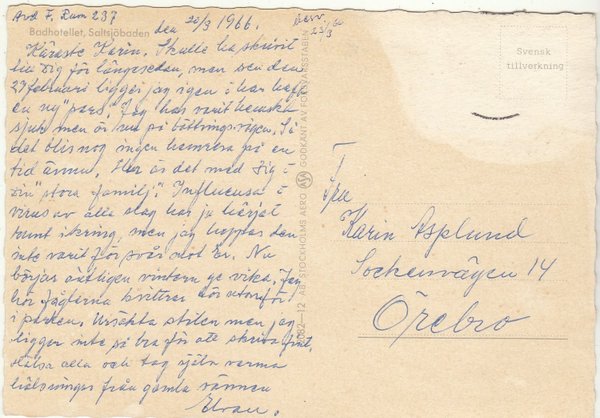 Avd F, Rum 237
den 20/3 1966.
Besv. 23/3 66
Badhotellet, Saltsjöbaden
Käraste Karin. Skulle ha skrivit
till Dig för längesedan, men sen den
27 februari ligger jag igen i har haft
en ny "pars". Jag har varit hemskt
sjuk men är nu på bättringsvägen. Så
det blir nog ingen hemresa på en
tid ännu. Hur är det med Dig i
Din "stora familj". Influensa i
virus av alla slag har ju härjat
runt ikring, men jag hoppas den
inte varit för svår mot Er. Nu
börjar äntligen vintern ge vika. Jag
hör fåglarna kvittra där utanför
i parken. Ursäkta stilen men jag
ligger inte så bra för att skriva fint.
Hälsa alla och tag själv varma
hälsningar från gamla vännen
Svensk
tillverkning
2082-12 AB STOCKHOLMS AERO ASA GODKÄNT AV FÖRSVARSSTABEN
Fru
Karin Asplund
Sockenvägen 14
Örebro